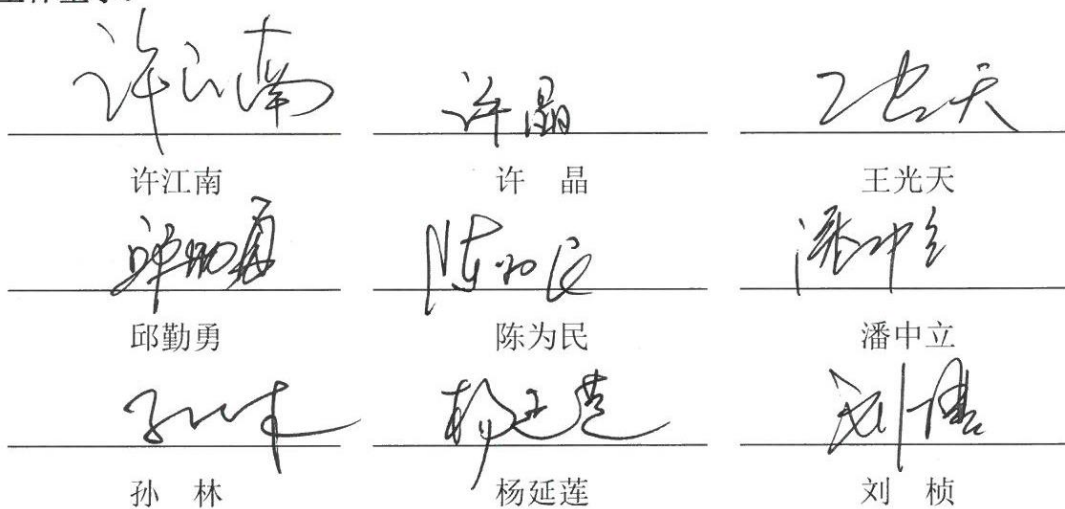 许江南 许晶 王光天
许江南 许 晶 王光天
邱勤勇 陈为民 潘中立
邱勤勇 陈为民 潘中立
孙林 杨延莲 刘桢
孙 林 杨延莲 刘 桢